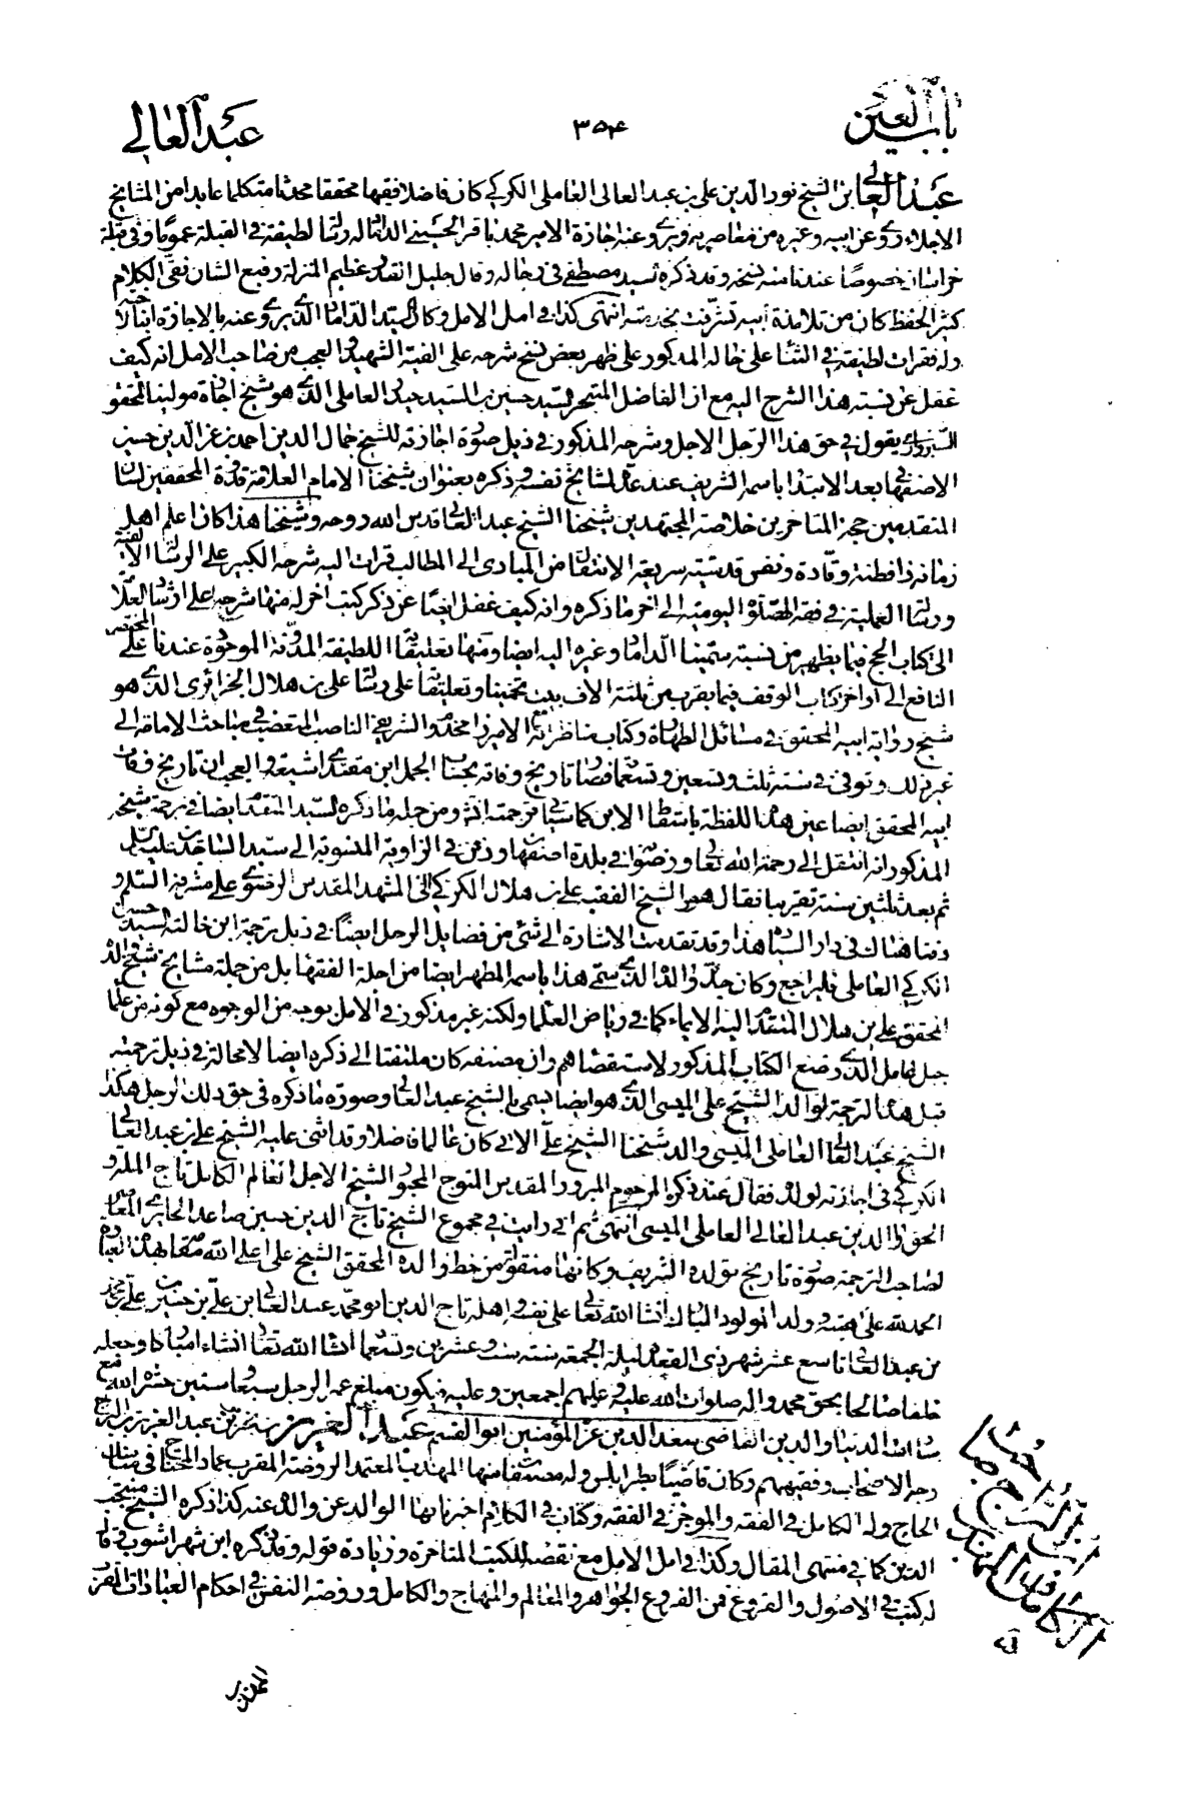 باب العين
٣٥٤
عبد العالي
عبد العالي بن الشيخ نور الدين علي بن عبد العالي العاملي الكركي كان فاضلا فقيها محققا محدثا متكلما عابدا من المشايخ
الاجلاء روى عن ابيه وغيره من معاصريه ويروى عنه اجازة الامير محمد باقر الحسيني الداماد له رسالة لطيفة في القبلة عموما وفي قبلة
خراسان خصوصا عندنا منه نسخه وقد ذكره السيد مصطفى في رجاله وقال جليل القدر عظيم المنزلة رفيع الشان نقي الكلام
كثير الحفظ كان من تلامذة ابيه تشرفت بخدمته انتهى كذا في امل الامل وكان السيد الداماد الذي يروى عنه بالاجازة ابن اخته
وله فقرات لطيفة في الثناء على خاله المذكور على ظهر بعض نسخ شرحه على الفية الشهيد والعجب من صاحب الامل انه كيف
غفل عن نسبة هذا الشرح اليه مع ان الفاضل المتبحر السيد حسين بن السيد حيدر العاملي الذي هو شيخ اجازة مولينا المحقق
السبزواري يقول في حق هذا الرجل الاجل وشرحه المذكور في ذيل صورة اجازته للشيخ جمال الدين احمد بن عز الدين حسين
الاصفهاني بعد الابتدا باسمه الشريف عند عد مشايخ نفسه وذكره بعنوان شيخنا الامام العلامة قدوة المحققين لسان
المتقدمين حجة المتاخرين خلاصة المجتهدين شيخنا الشيخ عبد العالي قدس الله روحه وشيخنا هذا كان اعلم اهل
زمانه ذا فطنة وقادة ونفس قدسية سريعة الانتقال من المبادى الى المطالب قرات اليه شرحه الكبير على الرسالة الالفية
ورسالته العملية في فقه الصلوة اليومية الى اخر ما ذكره وانه كيف غفل ايضا عن ذكر كتب اخر له منها شرحه على ارشاد العلامة
الى كتاب الحج فيما يظهر من نسبة سمينا الداماد وغيره اليه ايضا ومنها تعليقاته اللطيفة المدونة الموجودة عندنا على المختصر
النافع الى اواخر كتاب الوقف فيما يقرب من ثلثة الاف بيت تخمينا وتعليقاته على رسالة علي بن هلال الجزائري الذي هو
شيخ رواية ابيه المحقق في مسائل الطهارة وكتاب مناظراته مع الاميرزا مخدوم الشريفي الناصب المتعصب في مباحث الامامة الى
غير ذلك وتوفى في سنة ثلث وتسعين وتسعمائة فصار تاريخ وفاته بحساب الجمل ابن مقتداى شيعة والعجب ان تاريخ وفات
ابيه المحقق ايضا عين هذه اللفظة باسقاط الابن كما سياتي في ترجمته انش ومن جملة ما ذكره السيد المتقدم ايضا في ترجمة شيخه
المذكور انه انتقل الى رحمة الله تعالى ورضوانه في بلدة اصفهان ودفن في الزاوية المنسوبة الى سيد الساجدين
ثم بعد ثلثين سنة تقريبا نقل هو والشيخ الفقيه علي بن هلال الكركي الى المشهد المقدس الرضوي على مشرفه السلم و
دفنا هناك في دار السيادة هذا وقد تقدمت الاشارة الى شئ من فضايل الرجل ايضا في ذيل ترجمة ابن خالته السيد حسين
الكركي العاملي فليراجع وكان جد والده الذي سمي هذا باسمه المطهر ايضا من اجلة الفقهاء بل من جملة مشايخ شيخ والده
المحقق علي بن هلال المتقدم اليه الايماء كما في رياض العلماء ولكنه غير مذكور في الامل بوجه من الوجوه مع كونه من علماء
جبل عامل الذي وضع الكتاب المذكور لاستقصائهم وان مصنفه كان ملتفتا الى ذكره ايضا لا محالة في ذيل ترجمته
قبل هذه الترجمة لوالد الشيخ علي الميسي الذي هو ايضا يسمى بالشيخ عبد العالي وصورة ما ذكره في حق ذلك الرجل هكذا
الشيخ عبد العالي العاملي الميسي والد شيخنا الشيخ علي الاتي كان عالما فاضلا وقد اثنى عليه الشيخ علي بن عبد العالي
الكركي في اجازته لولده فقال عند ذكره المرحوم المبرور المقدس المتوج المحبور الشيخ الاجل العالم الكامل تاج الملة و
الحق والدين عبد العالي العاملي الميسي انتهى ثم اني رايت في مجموع الشيخ تاج الدين حسين صاعد الحائري المعاصر
لصاحب الترجمة صورة تاريخ تولده الشريف وكانها منقولة من خط والده المحقق الشيخ علي اعلى الله مقامه بهذه العبارة
الحمد لله على هبته ولد المولود المبارك انشا الله تعالى على نفسه واهله تاج الدين ابو محمد عبد العالي بن علي بن حسين بن علي بن محمد
بن عبد العالي تاسع عشر شهر ذي القعدة ليلة الجمعة سنة ست وعشرين وتسعمائة انشا الله تعالى انشاء مباركا وجعله
خلفا صالحا بحق محمد واله صلوات الله عليه وعليهم اجمعين وعليه فيكون مبلغ عمر الرجل سبعا وستين حشره الله مع
سادات الدنيا والدين القاضي سعد الدين عز المؤمنين ابو القسم عبد العزيز بن نحرير بن عبد العزيز بن البراج
وجه الاصحاب وفقيههم وكان قاضيا بطرابلس وله مصنفات منها المهذب المعتمد الروضة المقرب عماد المحتاج في مناسك
الحاج وله الكامل في الفقه والموجز في الفقه وكتاب في الكلام اخبرنا بها الوالد عن والده عنه كذا ذكره الشيخ منتجب
الدين كما في منتهى المقال وكذا في امل الامل مع نقصه للكتب المتاخرة وزيادة قوله وقد ذكره ابن شهراشوب وقال
له كتب في الاصول والفروع فمن الفروع الجواهر والمعالم والمنهاج والكامل وروضة النفس في احكام العبادات المقرب
ابن البراج صاحب
الكامل والمهذب
المهذب